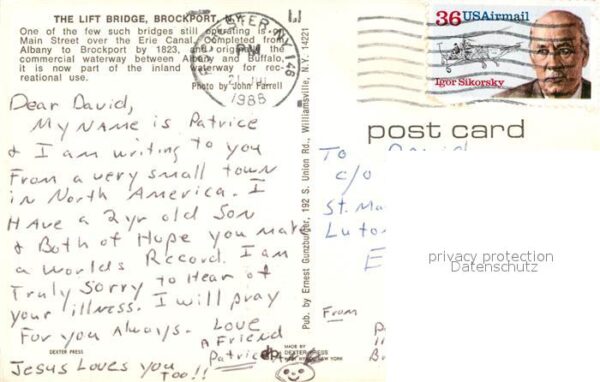 THE LIFT BRIDGE, BROCKPORT,
One of the few such bridges still operating is
Main Street over the Erie Canal, completed from
Albany to Brockport by 1823, and originally the
commercial waterway between Albany and Buffalo,
it is now part of the inland waterway for rec-
reational use.
Photo by John Farrell
PM
1988
36 USAirmail
Igor Sikorsky
Dear David,
My Name is Patrice
& I am writing to you
From a very small town
in North America. I
Have a 2yr old Son
& Both of Hope you make
a Worlds Record. I am
Truly Sorry to Hear of
your illness. I will pray
For you Always. Love
A Friend
Patrice
Jesus Loves you
Too!!
DEXTER PRESS
MADE BY
DEXTER PRESS
NEW YORK
Pub. by Ernest Gunzburger, 192 S. Union Rd., Williamsville, N.Y. 14221
post card
To David
c/o
St. Ma
Luto
E
privacy protection
Datenschutz
From